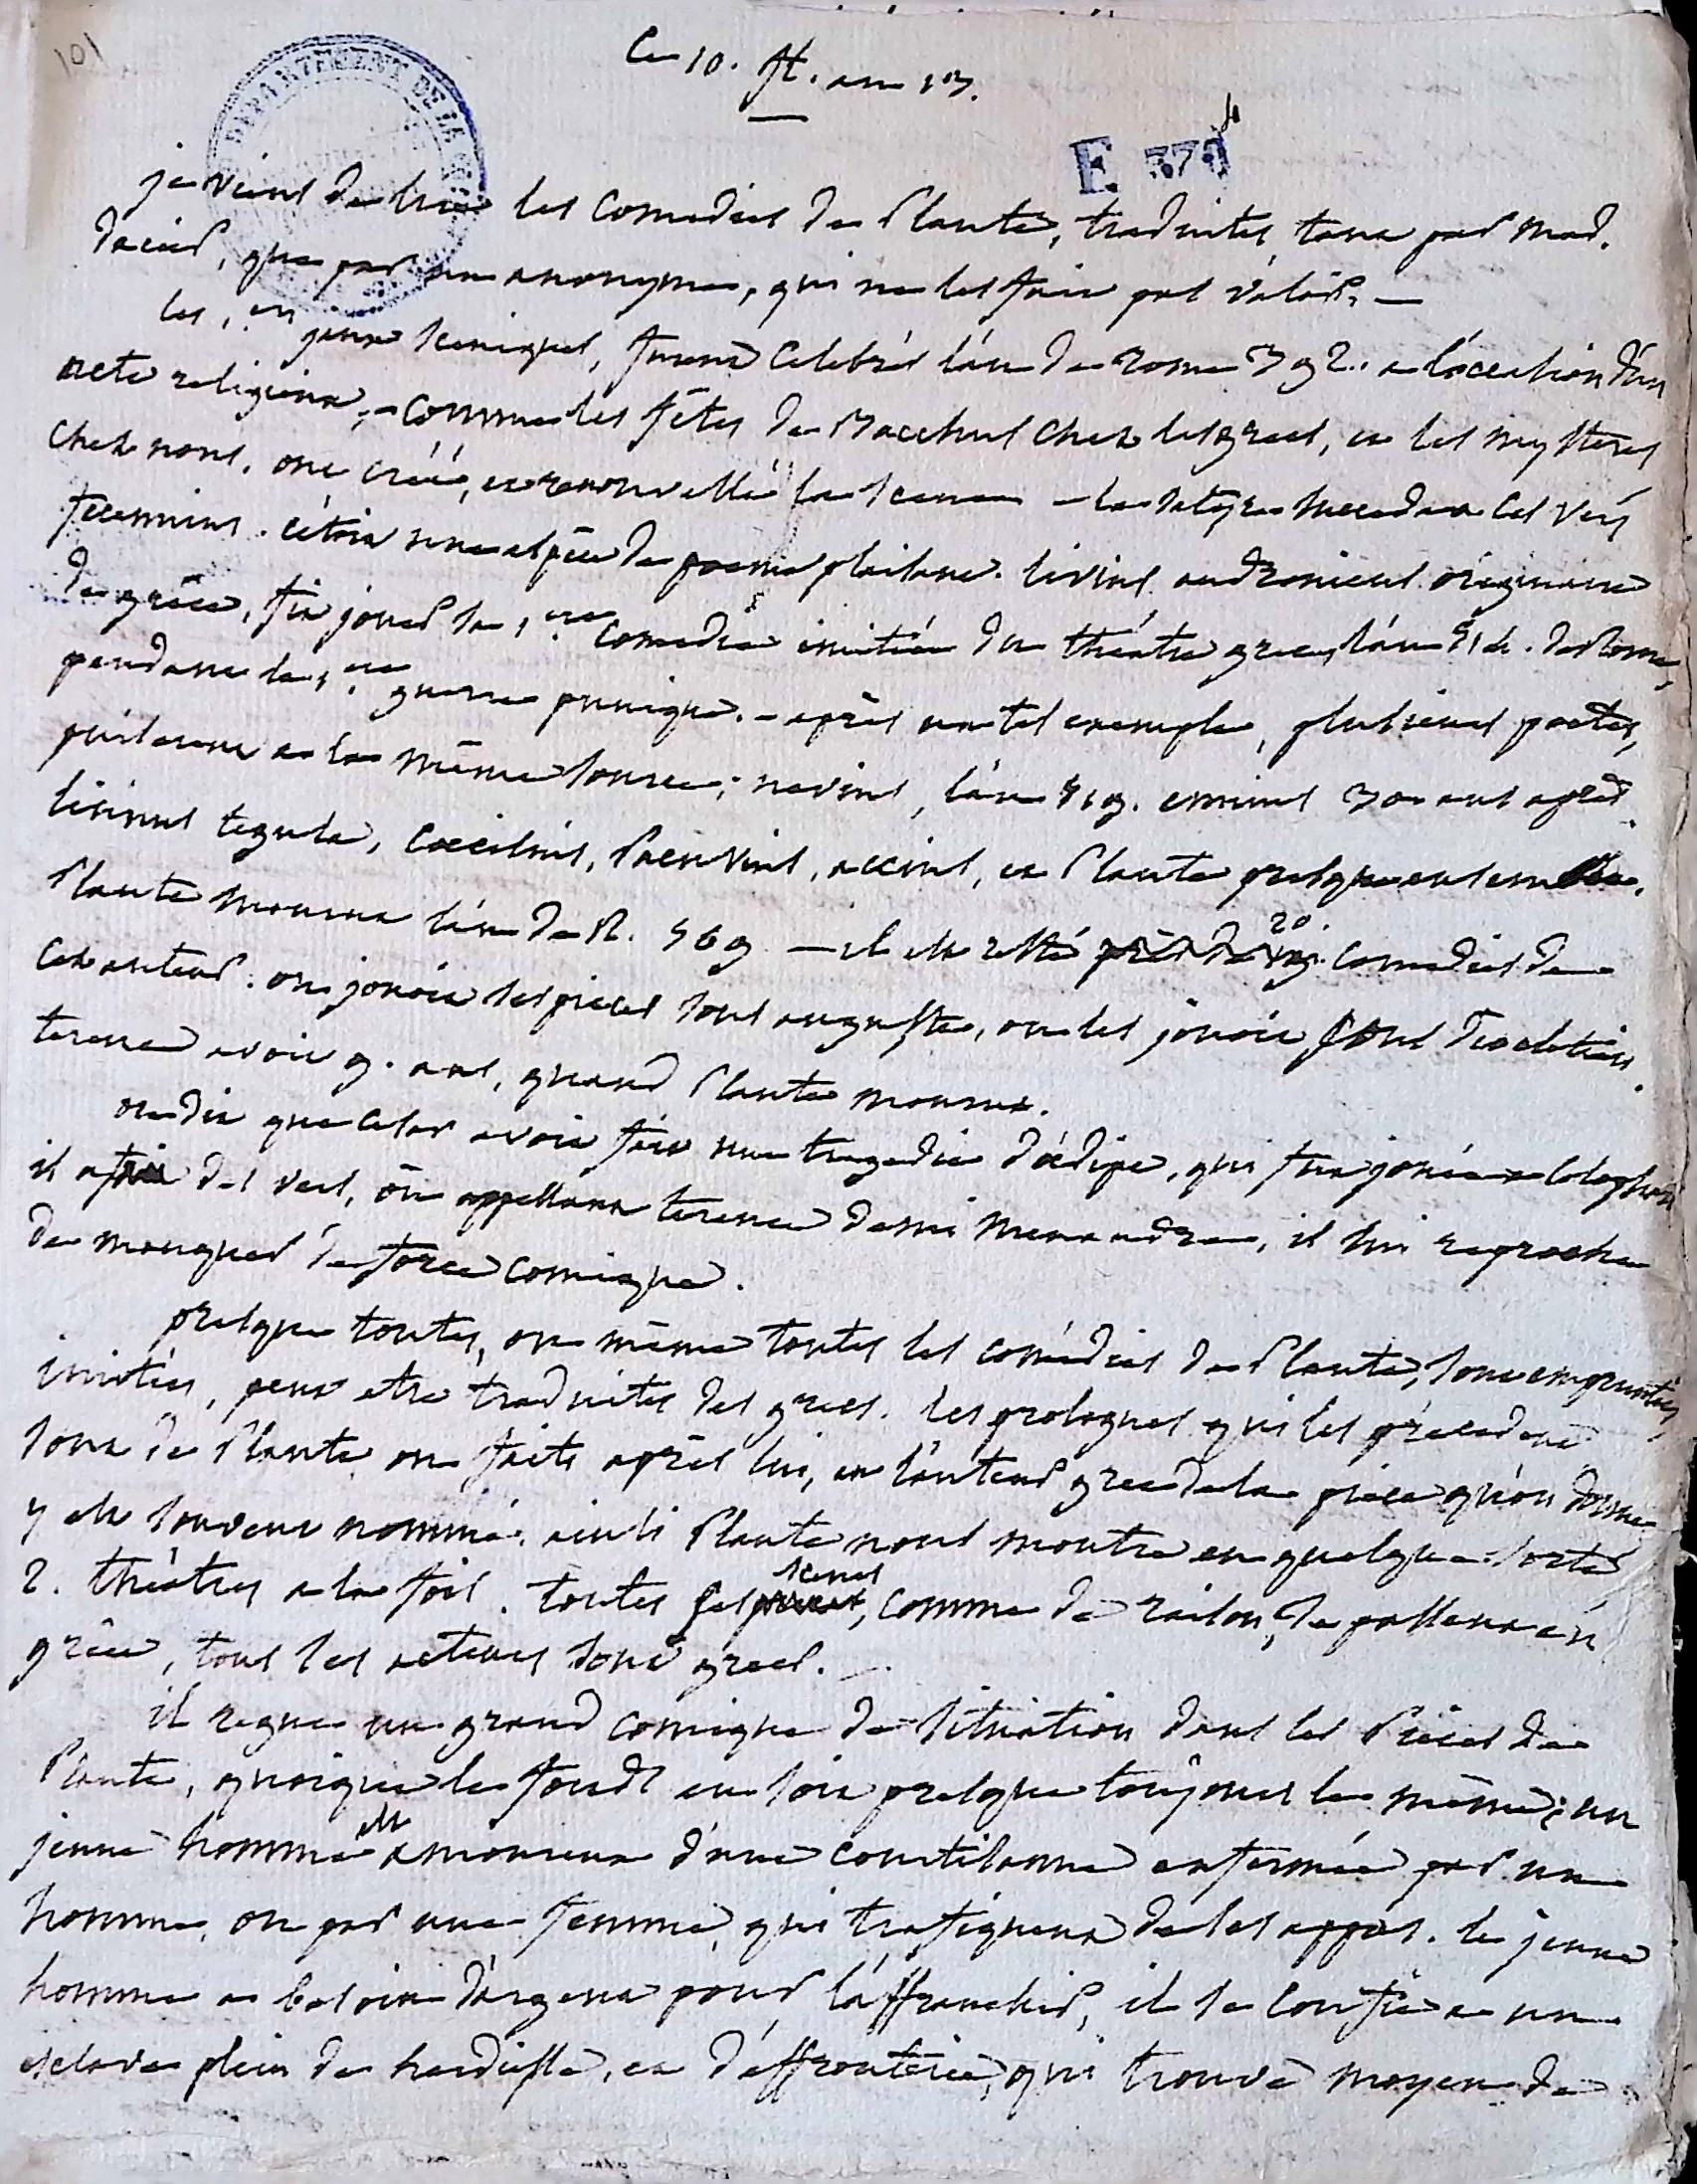 101
Ce 10. fl. an 13.
DEPARTEMENT DE LA
E 379
je viens de lire les Comedies de Plaute, traduites, tant par Mad.
Dacier, que par un anonyme, qui ne les fait pas valoir. —
les 1ers jeux sceniques, furent Celebrés l'an de Rome 392. a l'occasion d'un
acte religieux, - comme les fêtes de Bacchus chez les grecs, et les mysteres
chez nous, ont créé, et renouvellé la scene — la satyre succeda a ces vers
fecennins. c'étoit une espèce de poeme plaisant. livius andronicus originaire
de grèce, fit jouer la 1ere comedie imitée du théatre grec, l'an 514. de Rome,
pendant la 1ere guerre punique. - après un tel exemple, plusieurs poetes,
puiserent a la même source; nevius, l'an 519. ennius 30 ans après
licinius tegula, Coecilius, Pacuvius, accius, et Plaute presque ensemble.
Plaute mourut l'an de R. 569 — il est resté 20. comedies de
cet auteur: on jouoit ses pieces sous auguste, on les jouoit sous Diocletien.
terence avoit 9. ans, quand Plaute mourut.
on dit que Cesar avoit fait une tragedie d'œdipe, qui fut jouée a
il a fait des vers, où appellant terence demi menandre, il lui reproche
de manquer de force comique.
presque toutes, ou même toutes les comédies de Plaute, sont empruntées,
imitées, peut etre traduites des grecs. les prologues qui les précedent
sont de Plaute ou faits après lui, et l'auteur grec de la piece qu'on donne
y est souvent nommé. ainsi Plaute nous montre en quelque sorte
2. théatres a la fois. toutes ses scenes, comme de raison, se passent en
grèce, tous les acteurs sont grecs. —
il regne un grand comique de situation dans les Pièces de
Plaute, quoique le fonds en soit presque toujours le même; un
jeune homme est amoureux d'une courtisanne enfermée par un
homme, ou par une femme, qui trafiquent de ses appas. le jeune
homme a besoin d'argent pour l'affranchir, il se confie a un
esclave plein de hardiesse, et d'effronterie, qui trouve moyen de